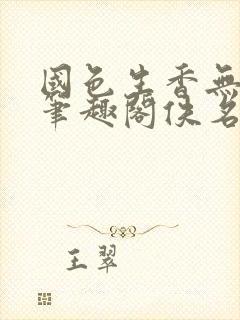 國色生香無
筆趣閣佚名
王翠